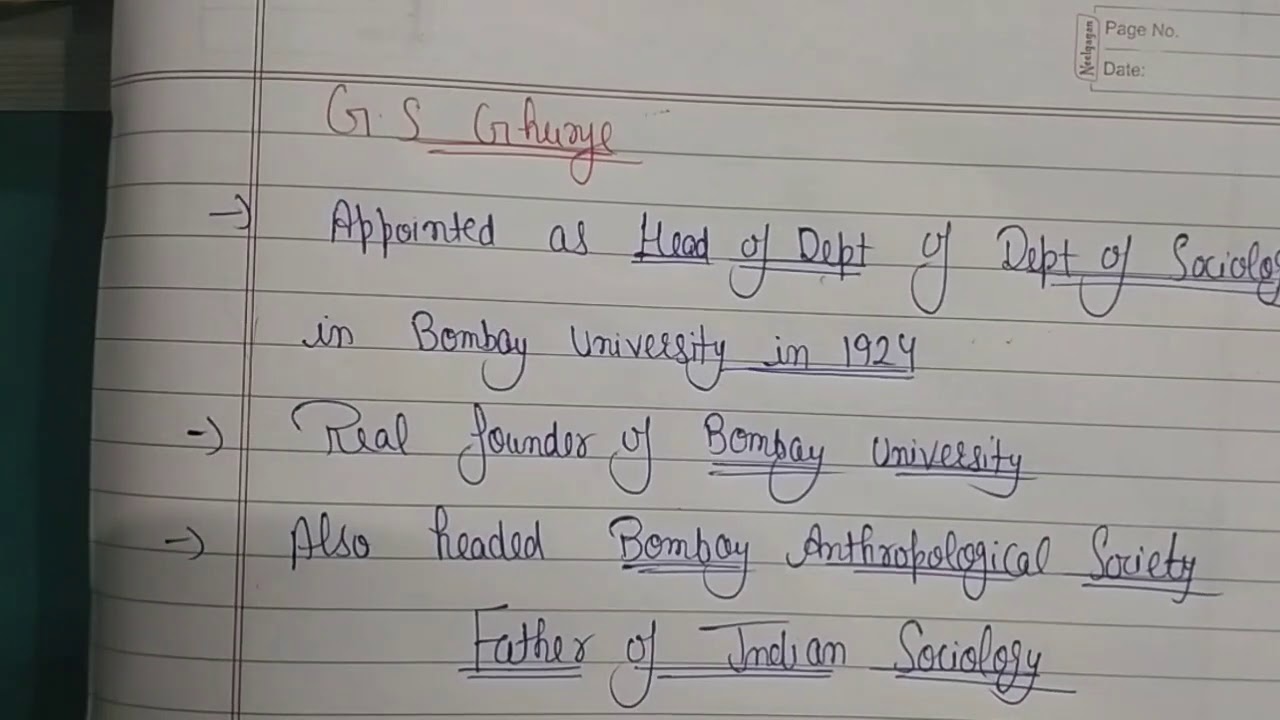 Neelgagan
Page No.
Date:
G.S Ghurye
→ Appointed as Head of Dept of Dept of Sociolog
in Bombay University in 1924
→ Real founder of Bombay University
→ Also headed Bombay Anthropological Society
Father of Indian Sociology